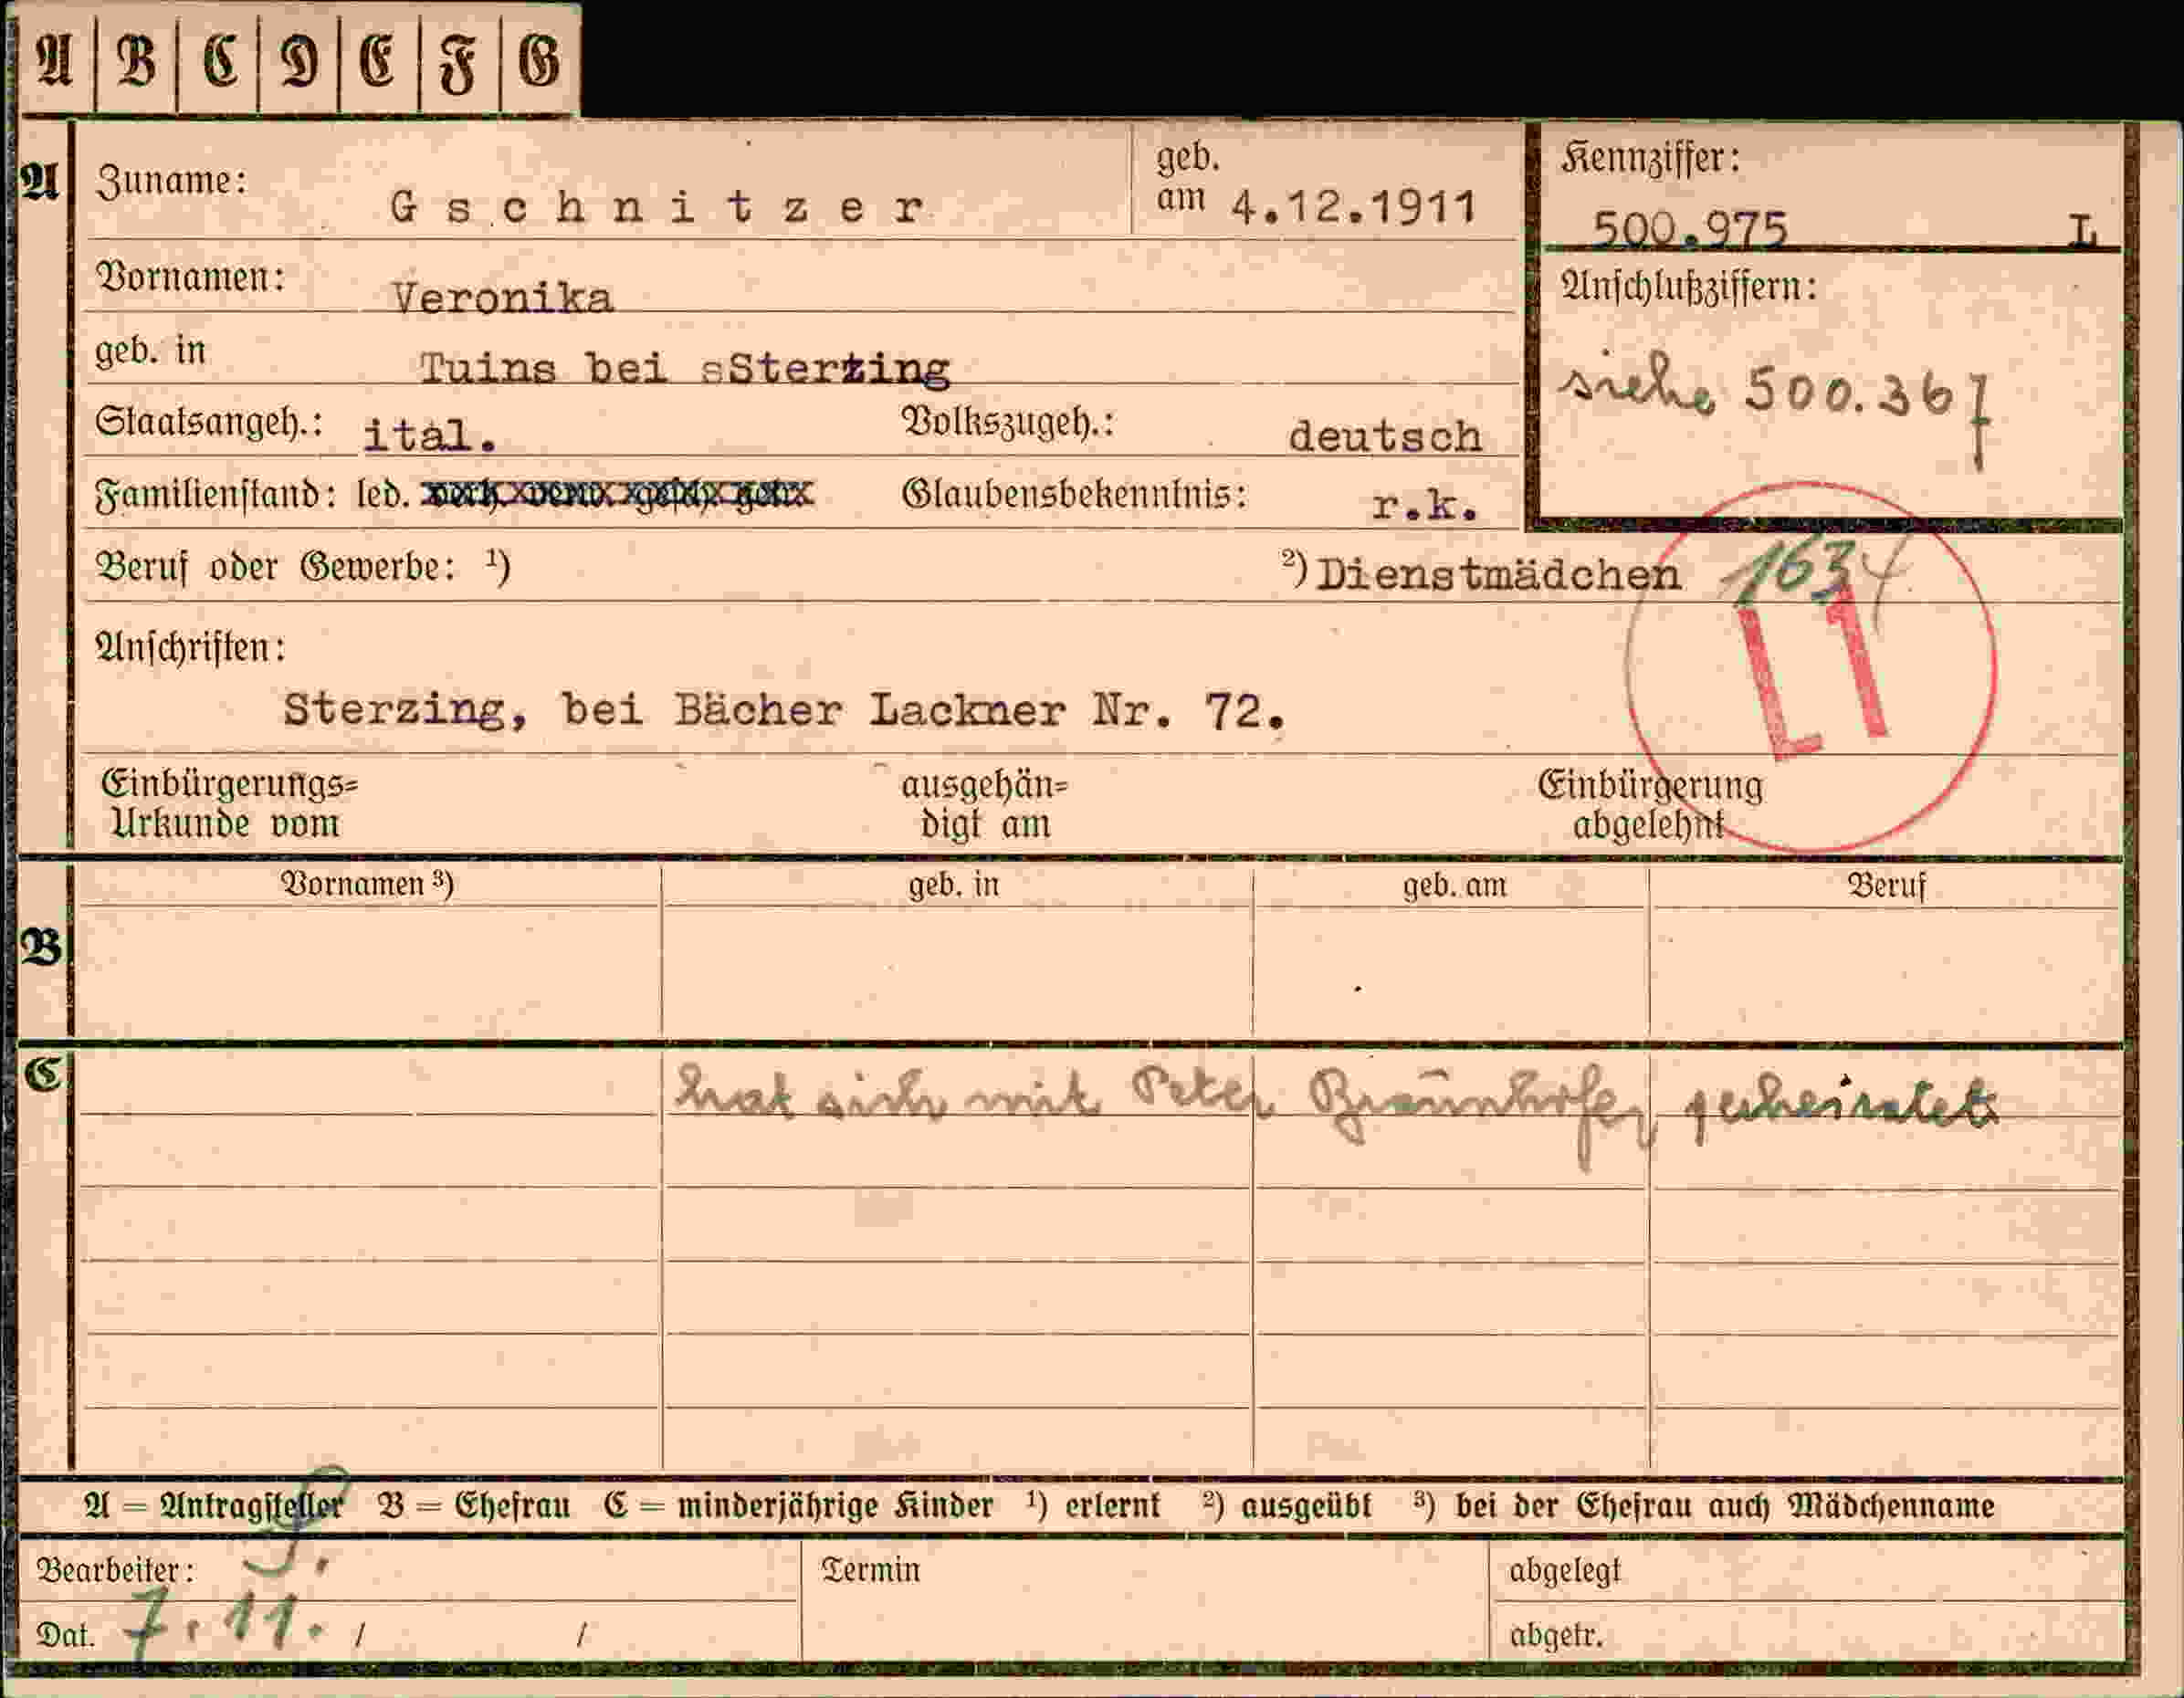 A B C D E F G
A Zuname: Gschnitzer geb. am 4.12.1911 Kennziffer: 500.975 L
Vornamen: Veronika Anschlußziffern:
geb. in Tuins bei sSterzing siehe 500.367
Staatsangeh.: ital. Volkszugeh.: deutsch
Familienstand: led. verh. verw. gesch. getr. Glaubensbekenntnis: r.k.
Beruf oder Gewerbe: ¹) ²) Dienstmädchen 1634
Anschriften: L1
Sterzing, bei Bächer Lackner Nr. 72.
Einbürgerungs= ausgehän= Einbürgerung
Urkunde vom digt am abgelehnt
Vornamen ³) geb. in geb. am Beruf
B
C hat sich mit Peter Braunhofer geheiratet
A = Antragsteller B = Ehefrau C = minderjährige Kinder ¹) erlernt ²) ausgeübt ³) bei der Ehefrau auch Mädchenname
Bearbeiter: Termin abgelegt
Dat. 7.11. / / abgetr.